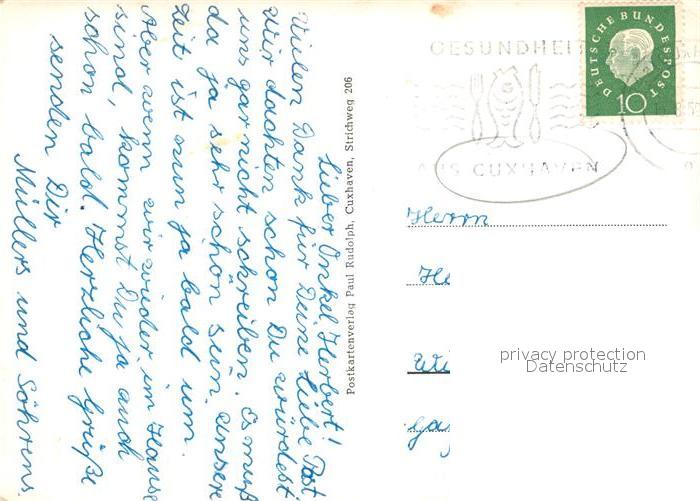 Lieber Onkel Herbert!
Vielen Dank für Deine liebe Post
wir dachten schon Du würdest
uns gar nicht schreiben. Es muß
da ja sehr schön sein. Unsere
Zeit ist nun ja bald um.
Aber wenn wir wieder im Hause
sind, kommst Du ja auch
schon bald. Herzliche Grüße
senden Dir
Müllers und Söhrens
Postkartenverlag Paul Rudolph, Cuxhaven, Strichweg 206
GESUNDHEIT
AUS CUXHAVEN
DEUTSCHE BUNDESPOST
10
Herrn
He
Wi
privacy protection
Datenschutz